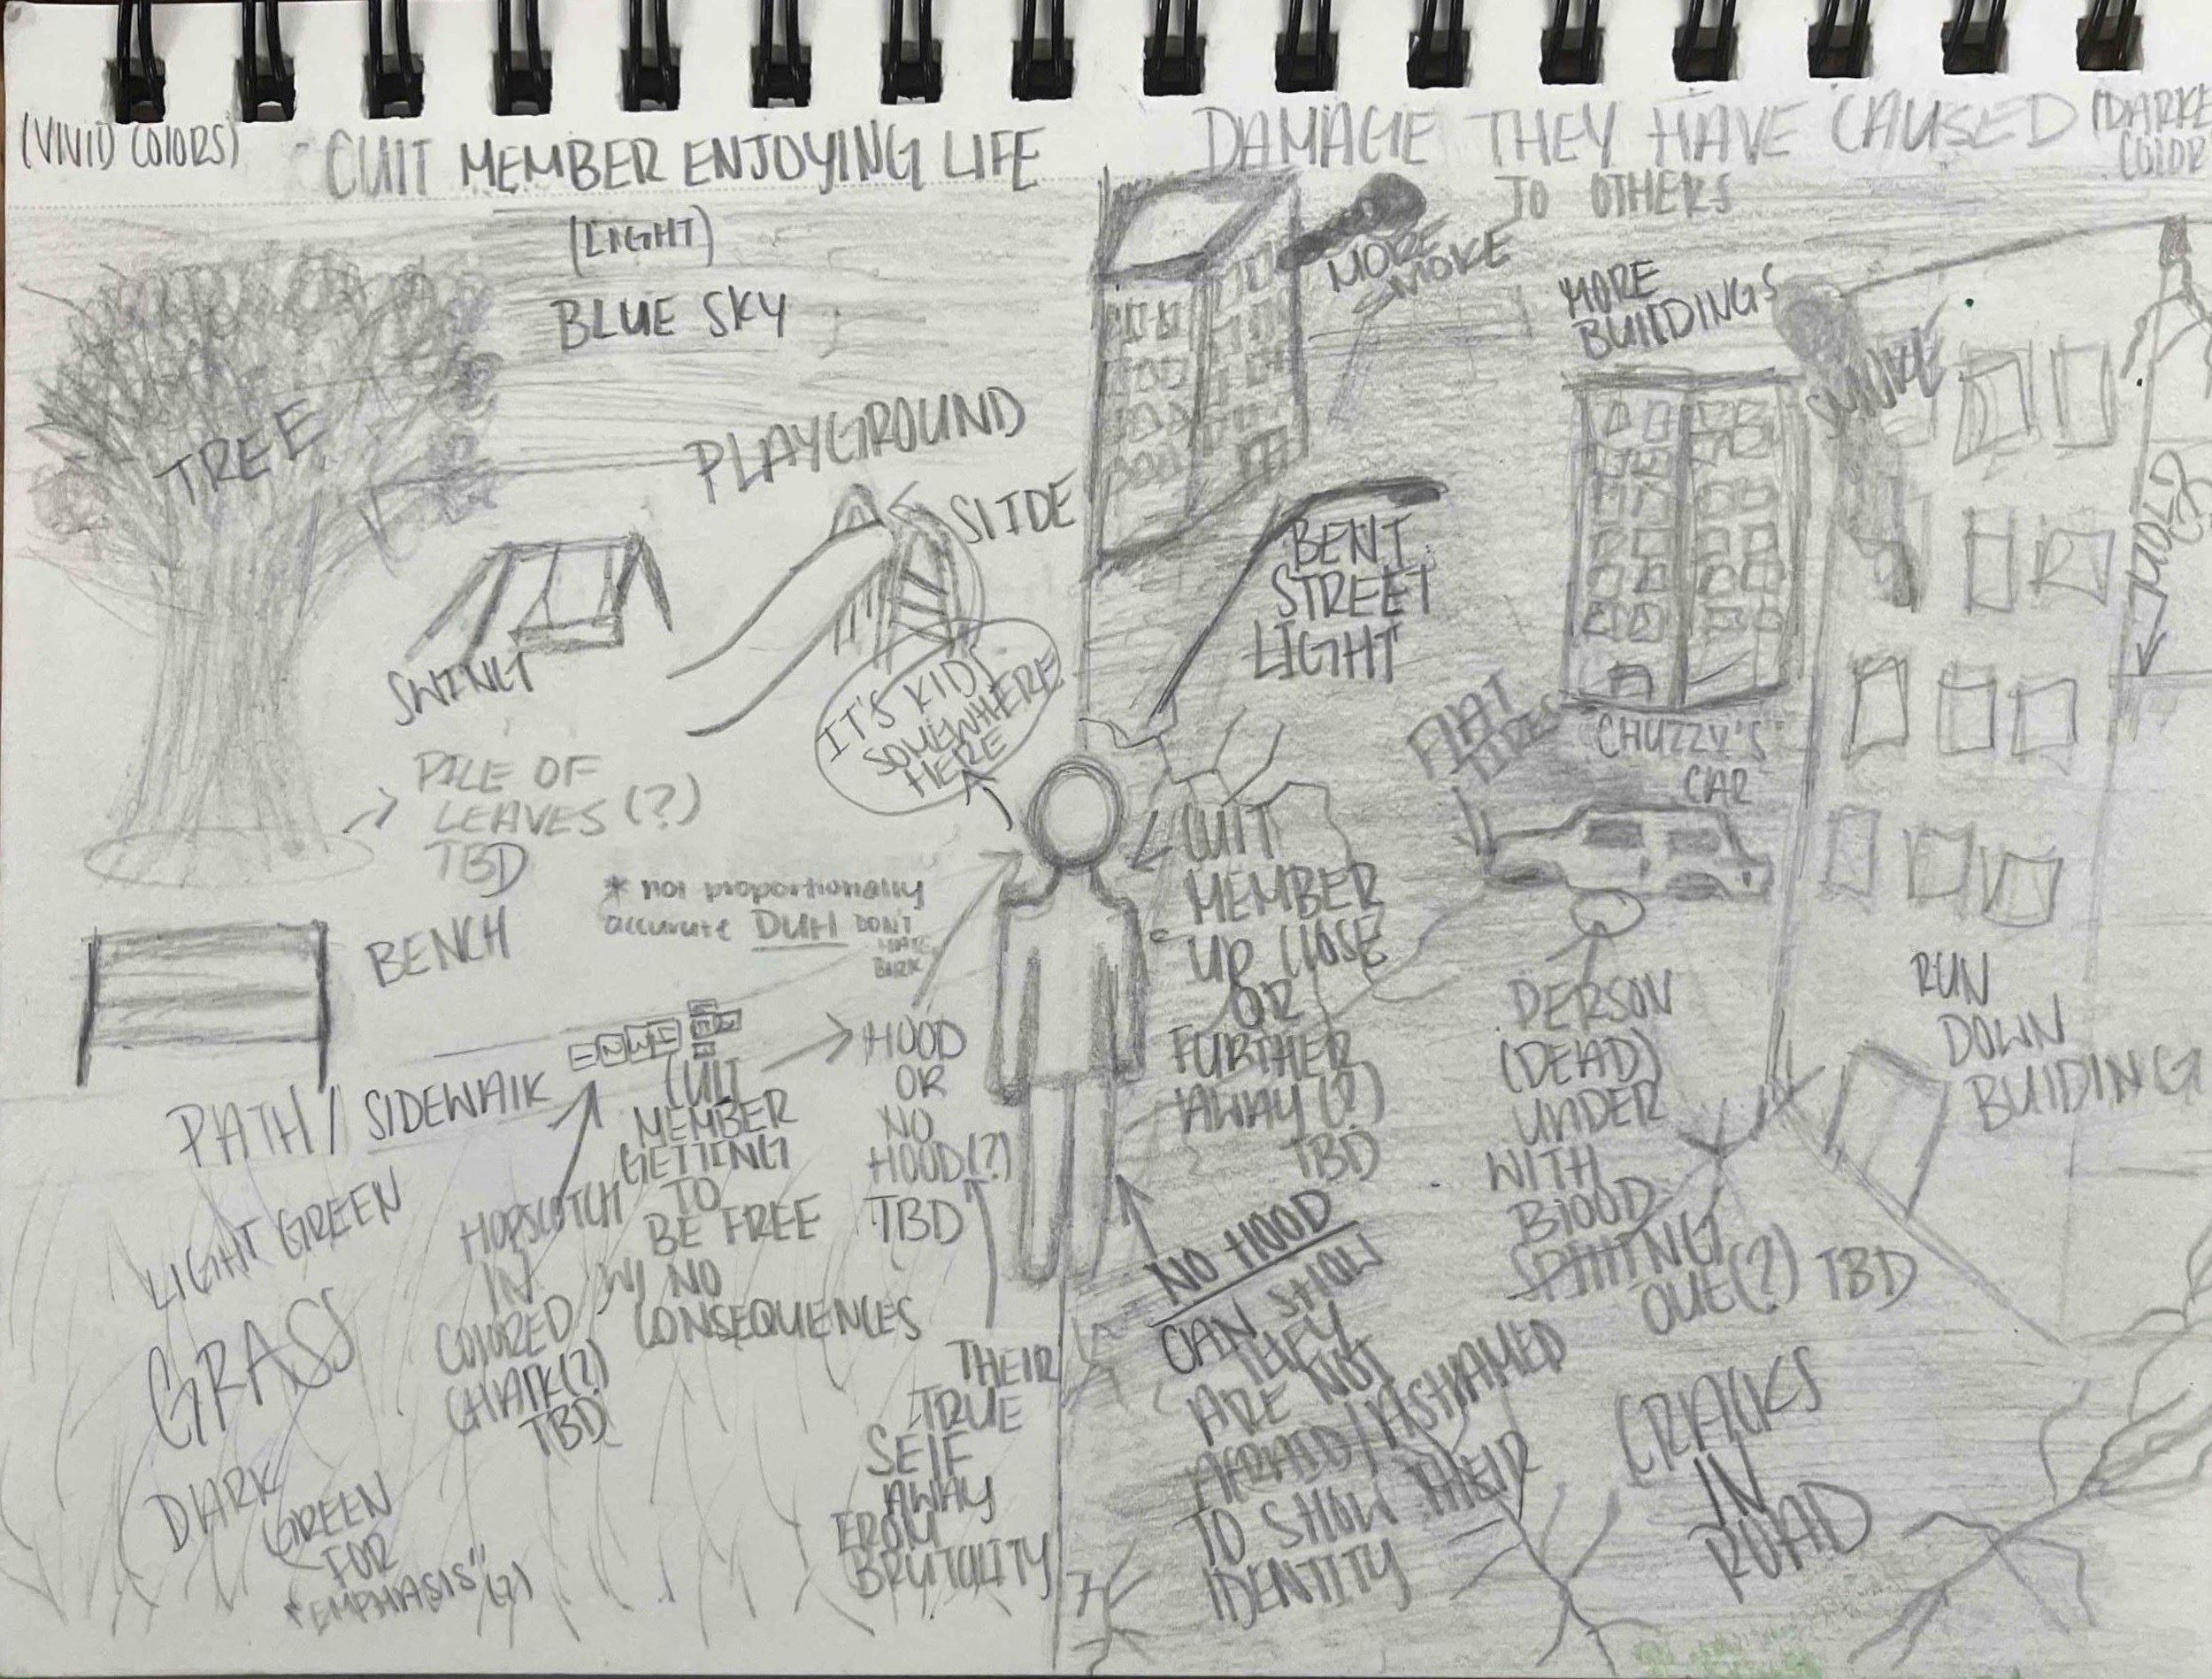 (VIVID COLORS)
CULT MEMBER ENJOYING LIFE
(LIGHT)
BLUE SKY
TREE
PLAYGROUND
SLIDE
SWING
IT'S KIDS
SOMEWHERE
HERE
PILE OF
LEAVES (?)
TBD
* not proportionally
accurate DUH DON'T
BENCH
PATH / SIDEWALK
CULT
MEMBER
GETTING
TO
BE FREE
W/ NO
CONSEQUENCES
HOOD
OR
NO
HOOD(?)
TBD
HOPSCOTCH
IN
COLORED
CHALK(?)
TBD
LIGHT GREEN
GRASS
DARK
GREEN
FOR
"EMPHASIS" (?)
THEIR
TRUE
SELF
AWAY
FROM
BRUTALITY
DAMAGE THEY HAVE CAUSED
TO OTHERS
(DARKE
COLOR
MORE
SMOKE
MORE
BUILDINGS
SMOKE
MOLD
BENT
STREET
LIGHT
FLAT
TIRES
CHUZZY'S
CAR
CULT
MEMBER
UP CLOSE
OR
FURTHER
AWAY (?)
TBD
PERSON
(DEAD)
UNDER
WITH
BLOOD
SPITTING
OUT(?) TBD
RUN
DOWN
BUIDING
NO HOOD
CAN SHOW
THEY
ARE NOT
AFRAID/ASHAMED
TO SHOW THEIR
IDENTITY
CRACKS
IN
ROAD